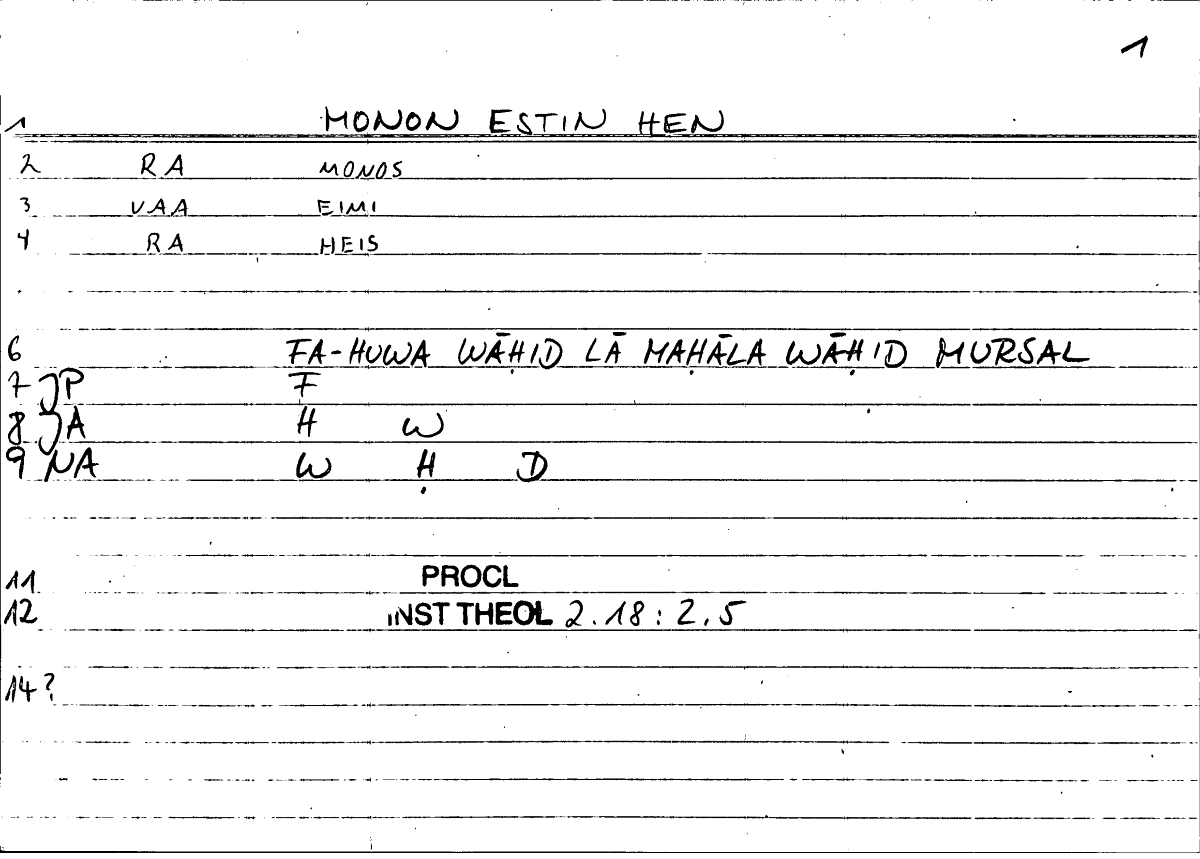 1
1 MONON ESTIN HEN
2 RA MONOS
3 VAA EIMI
4 RA HEIS
6 FA-HUWA WĀḤID LĀ MAḤĀLA WĀḤID MURSAL
7 P F
8 A H W
9 NA W Ḥ D
11 PROCL
12 INST THEOL 2.18:2.5
14?